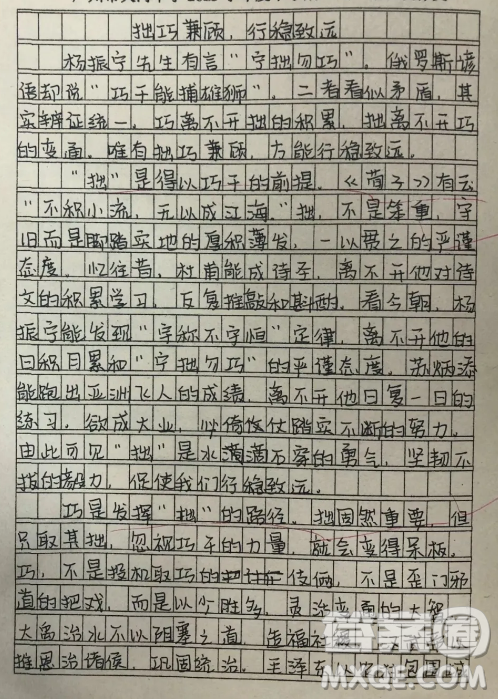 拙巧兼顾,行稳致远
杨振宁先生有言“宁拙勿巧”。俄罗斯谚
语却说“巧干能捕雄狮”。二者看似矛盾,其
实辩证统一。巧离不开拙的积累,拙离不开巧
的变通。唯有拙巧兼顾,方能行稳致远。
“拙”是得以巧干的前提。《荀子》有云
“不积小流,无以成江海。”拙,不是笨重,守
旧而是脚踏实地的厚积薄发,一以贯之的严谨
态度。忆往昔,杜甫能成诗子,离不开他对诗
文的积累学习,反复推敲和斟酌。看今朝,杨
振宁能发现“宇称不守恒”定律,离不开他的
日积月累和“宁拙勿巧”的严谨态度。苏炳添
能跑出亚洲飞人的成绩,离不开他日复一日的
练习。欲成大业,必倚仗踏实不断的努力。
由此可见“拙”是水滴滴石穿的勇气,坚韧不
拔的毅力,促使我们行稳致远。
巧是发挥“拙”的路径。拙固然重要,但
只取其拙,忽视巧干的力量,就会变得呆板。
巧,不是投机取巧的伎俩,不是歪门邪
道的把戏,而是以少胜多,灵活变通的大智
大禹治水不以阻塞之道,造福社
推恩治诸侯,巩固统治。毛泽东以农村包围城